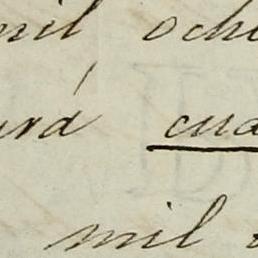 mil ocho
urá cua
mil